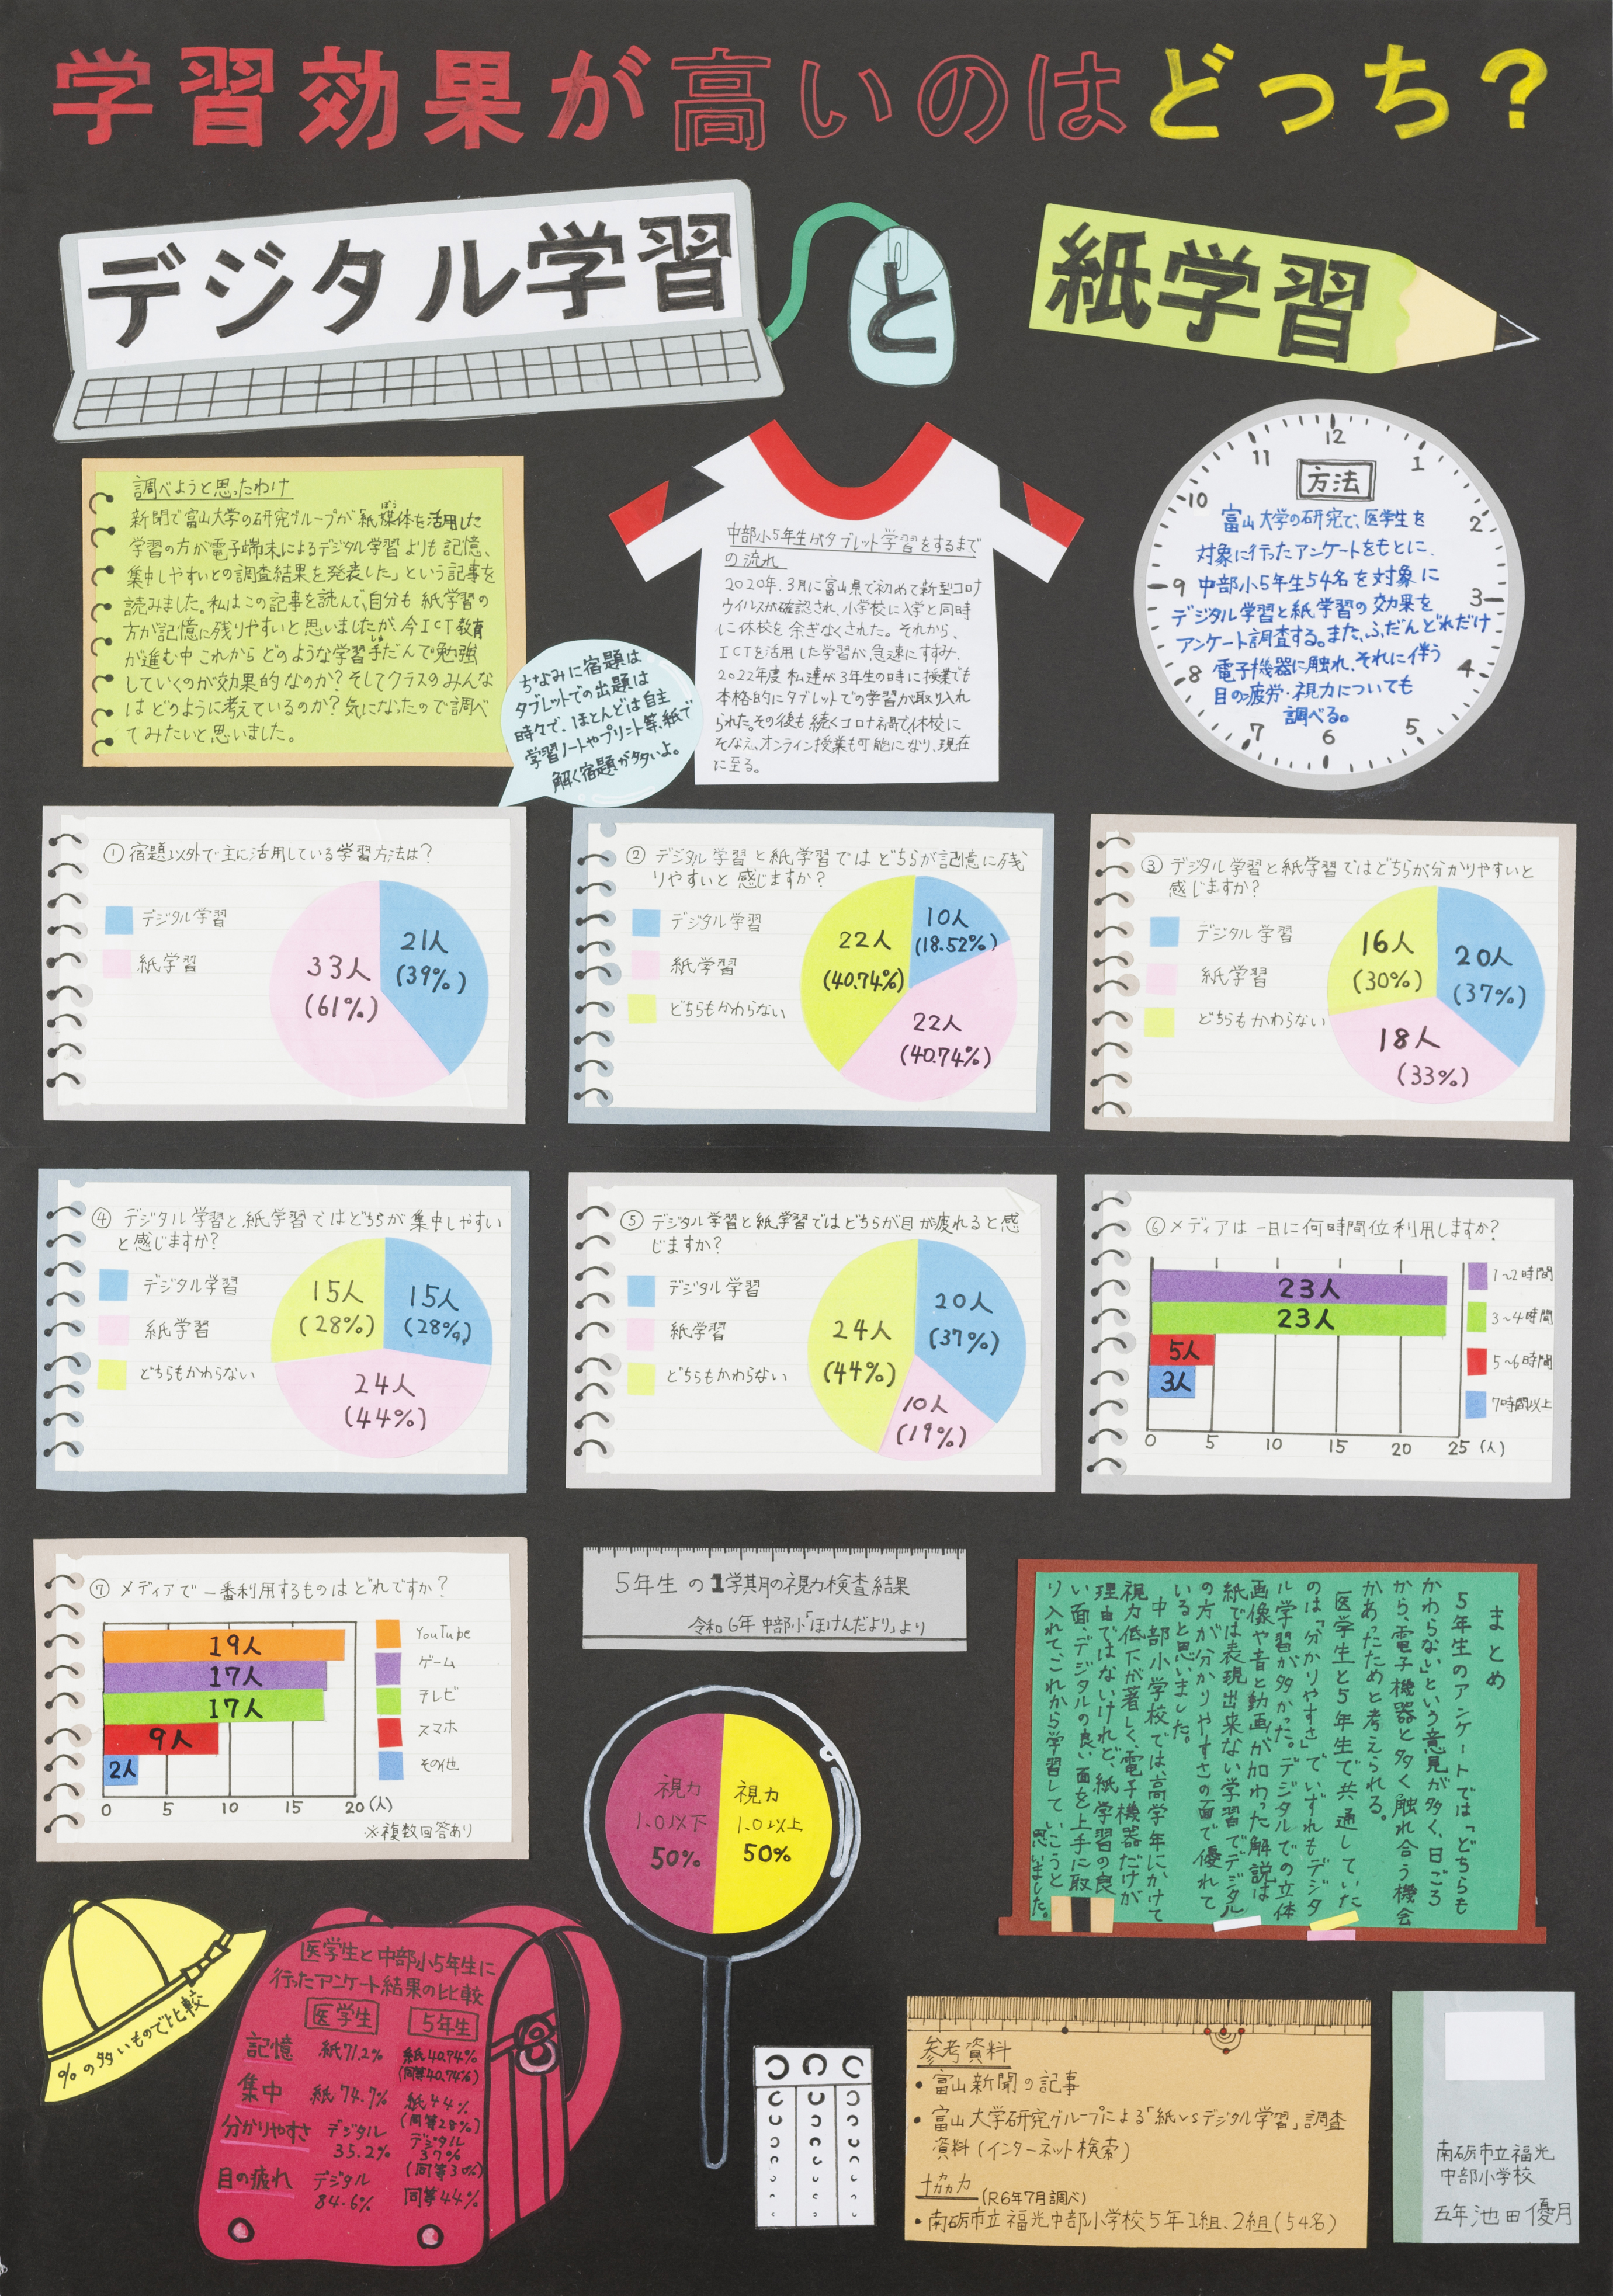 学習効果が高いのはどっち？
デジタル学習
と
紙学習
調べようと思ったわけ
新聞で富山大学の研究グループが「紙媒体を活用した
ばい
学習の方が電子端末によるデジタル学習よりも記憶、
集中しやすいとの調査結果を発表した」という記事を
読みました。私はこの記事を読んで、自分も紙学習の
方が記憶に残りやすいと思いましたが、今ICT教育
が進む中これからどのような学習手だんで勉強
していくのが効果的なのか？そしてクラスのみんな
はどのように考えているのか？気になったので調べ
てみたいと思いました。
ちなみに宿題は
タブレットでの出題は
時々で、ほとんどは自主
学習ノートやプリント等、紙で
解く宿題が多いよ。
中部小5年生がタブレット学習をするまで
の流れ
2020年、3月に富山県で初めて新型コロナ
ウイルスが確認され、小学校に入学と同時
に休校を余ぎなくされた。それから、
ICTを活用した学習が、急速にすすみ、
2022年度私達が3年生の時に授業でも
本格的にタブレットでの学習が取り入れ
られた。その後も続くコロナ禍で休校に
そなえ、オンライン授業も可能になり、現在
に至る。
12
1
2
3
4
5
6
7
8
9
10
11
方法
富山大学の研究で、医学生を
対象に行ったアンケートをもとに、
中部小5年生54名を対象に
デジタル学習と紙学習の効果を
アンケート調査する。また、ふだんどれだけ
電子機器に触れ、それに伴う
目の疲労・視力についても
調べる。
①宿題以外で主に活用している学習方法は？
デジタル学習
紙学習
21人
(39%)
33人
(61%)
②デジタル学習と紙学習ではどちらが記憶に残
りやすいと感じますか？
デジタル学習
紙学習
どちらもかわらない
10人
(18.52%)
22人
(40.74%)
22人
(40.74%)
③デジタル学習と紙学習ではどちらが分かりやすいと
感じますか？
デジタル学習
紙学習
どちらもかわらない
16人
(30%)
20人
(37%)
18人
(33%)
④デジタル学習と紙学習ではどちらが集中しやすい
と感じますか？
デジタル学習
紙学習
どちらもかわらない
15人
(28%)
15人
(28%)
24人
(44%)
⑤デジタル学習と紙学習ではどちらが目が疲れると感
じますか？
デジタル学習
紙学習
どちらもかわらない
20人
(37%)
24人
(44%)
10人
(19%)
⑥メディアは一日に何時間位利用しますか？
23人
23人
5人
3人
1～2時間
3～4時間
5～6時間
7時間以上
0 5 10 15 20 25 (人)
⑦メディアで一番利用するものはどれですか？
19人
17人
17人
9人
2人
YouTube
ゲーム
テレビ
スマホ
その他
0 5 10 15 20 (人)
※複数回答あり
5年生の1学期の視力検査結果
令和6年中部小「ほけんだより」より
視力
1.0以下
50%
視力
1.0以上
50%
まとめ
5年生のアンケートでは「どちらも
かわらない」という意見が多く、日ごろ
から、電子機器と多く触れ合う機会
があったためと考えられる。
医学生と5年生で共通していた
のは「分かりやすさ」でいずれもデジタ
ル学習が多かった。デジタルでの立体
画像や音と動画が加わった解説は
紙では表現出来ない学習でデジタル
の方が分かりやすさの面で優れて
いると思いました。
中部小学校では、高学年にかけて
視力低下が著しく、電子機器だけが
理由ではないけれど、紙学習の良
い面、デジタルの良い面を上手に取
り入れて、これから学習していこうと
思いました。
%の多いもので比較
医学生と中部小5年生に
行ったアンケート結果の比較
医学生 5年生
記憶 紙71.2% 紙40.74%
(同等40.74%)
集中 紙74.7% 紙44%
(同等28%)
分かりやすさ デジタル 35.2% デジタル 37%
(同等30%)
目の疲れ デジタル 84.6% 同等44%
参考資料
・富山新聞の記事
・富山大学研究グループによる「紙vsデジタル学習」調査
資料(インターネット検索)
協力(R6年7月調べ)
・南砺市立福光中部小学校5年1組、2組(54名)
南砺市立福光
中部小学校
五年池田優月